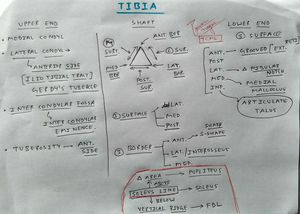 TIBIA
UPPER END
• MEDIAL CONDYL
• LATERAL CONDYL
ANTERIOR SIDE
[ILIO TIBIAL TRACT]
GERDY'S TUBERCLE
• INTER CONDYLAR FOSSA
INTER CONDYLAR
EMINENCE.
• TUBEROSITY → ANT. SIDE
SHAFT
ANT. BOR
M SUR
MED BOR
L SUR.
LAT. BOR
POST. SUR
3 SURFACE
LAT.
MED.
POST.
3 BORDER
ANT. → S-SHAPE
LAT./INTEROSSEUS
MED.
Δ AREA → POPLITEUS
↑ ABOVE
SOLEUS LINE → SOLEUS
↓ BELOW
VERTICAL RIDGE → FDL
LOWER END
5 SURFACE
ANT. → GROOVED
EXT. RETI
POST.
LAT. → Δ FIBULAR NOTCH
MED → MEDIAL MALLEOLUS
INF.
ARTICULATE
TALUS